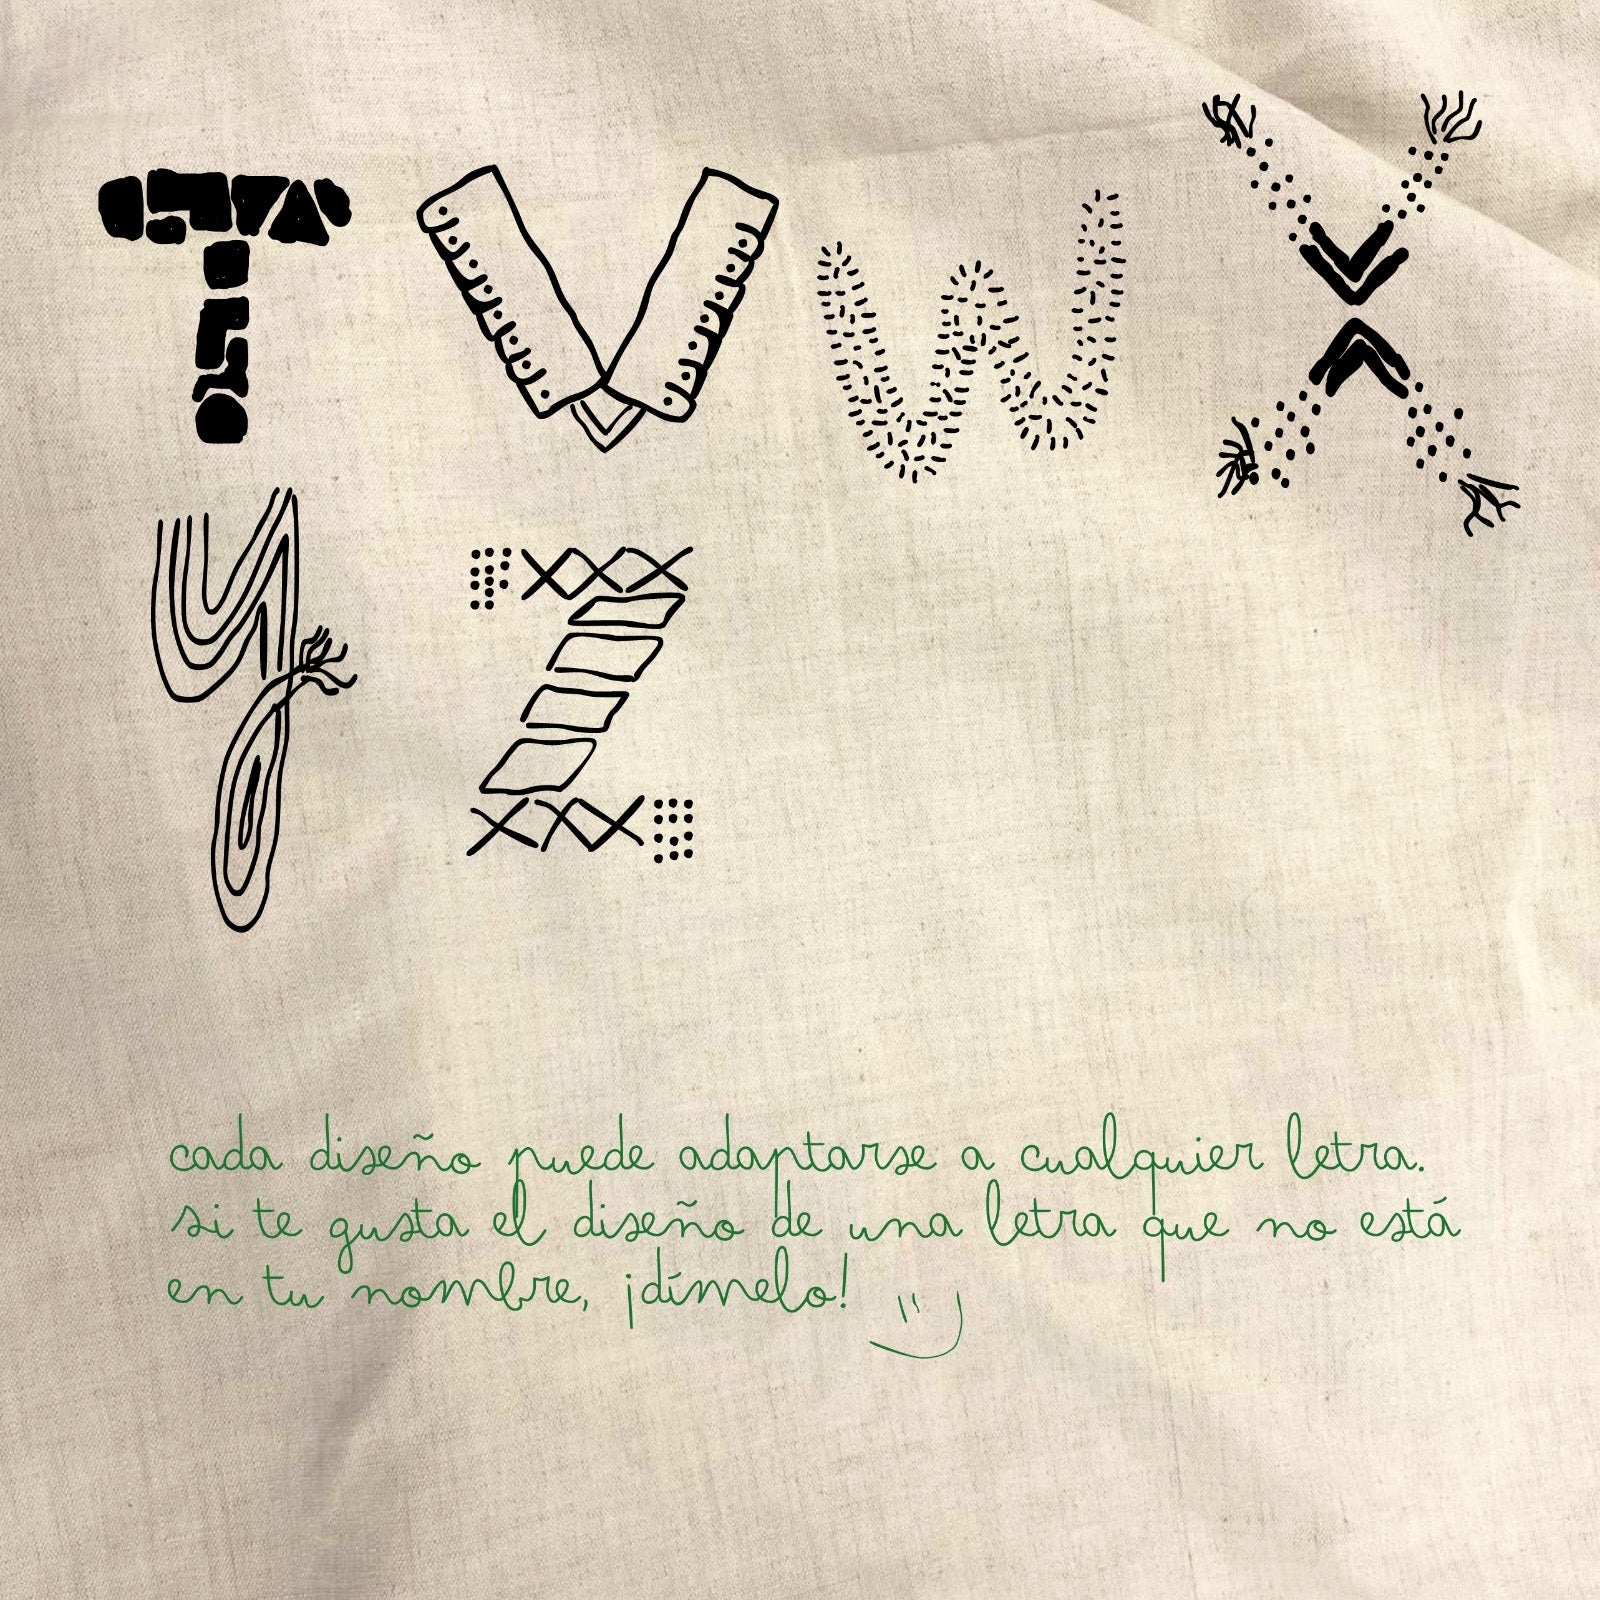 T V W X
y Z
cada diseño puede adaptarse a cualquier letra.
si te gusta el diseño de una letra que no está
en tu nombre, ¡dímelo!